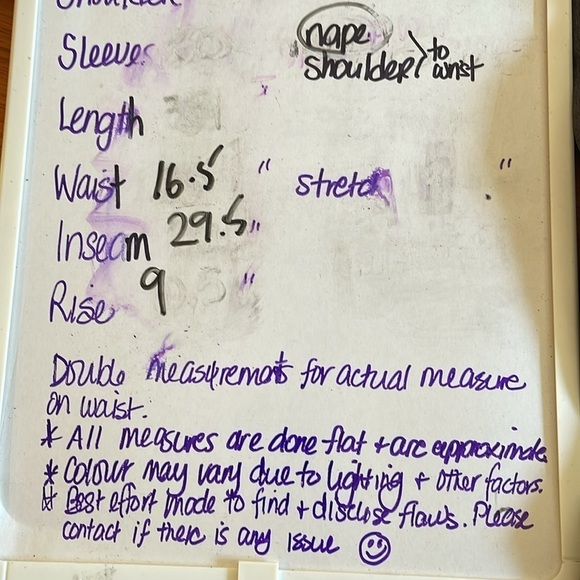 Shoulder
Sleeves nape
shoulder > to wrist
Length "
Waist 16.5 " stretch "
Inseam 29.5 "
Rise 9 "
Double measurements for actual measure
on waist.
* All measures are done flat + are approximate
* Colour may vary due to lighting + other factors.
* Best effort made to find + disclose flaws. Please
contact if there is any issue ☺